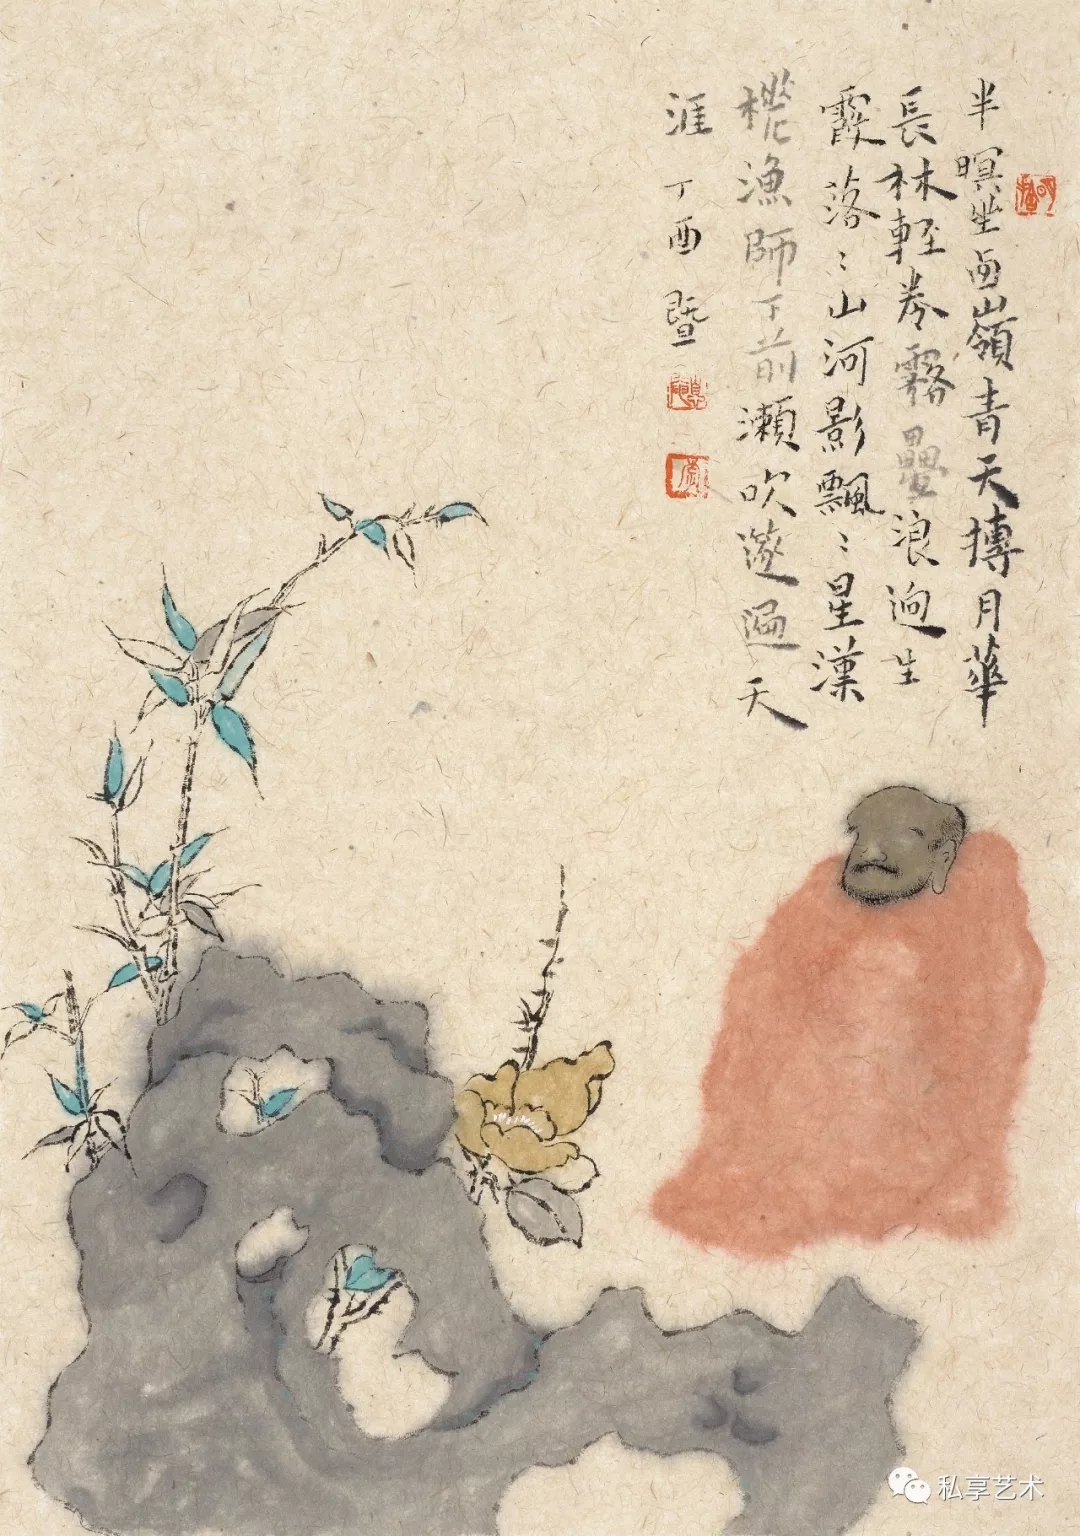 半暝坐西嶺青天摶月華
長林輕卷霧疊浪迥生
霞落〻山河影飄〻星漢
樅漁師丁前瀨吹邃遍天
涯 丁酉 暨
私享艺术